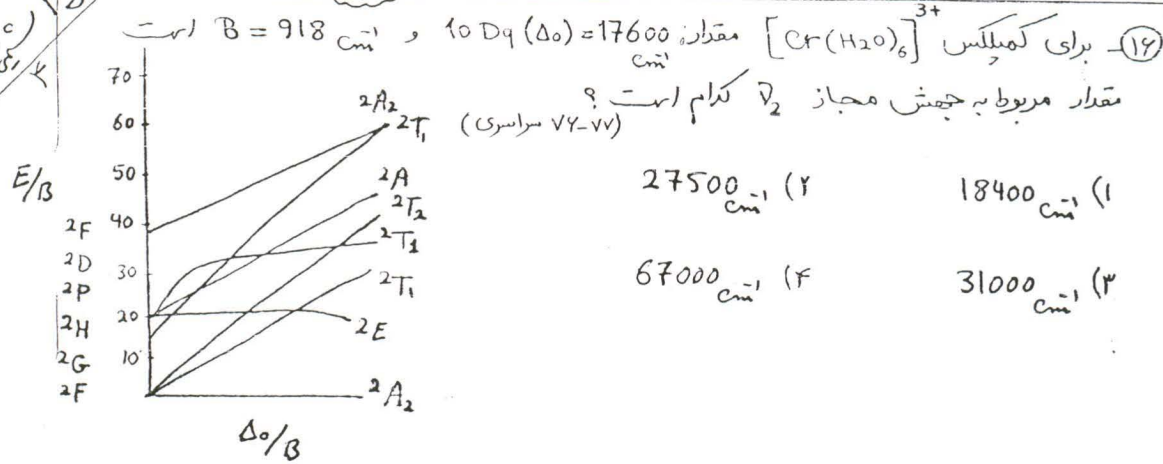 ۱۶- برای کمپلکس [Cr(H2O)6]3+ مقدار 10 Dq (Δo) = 17600 cm-1 و B = 918 cm-1 است
مقدار مربوط به جهش مجاز ν2 کدام است ؟
(سراسری ۷۶-۷۷)
۱) 18400 cm-1
۲) 27500 cm-1
۳) 31000 cm-1
۴) 67000 cm-1
E/B
70
60
50
40
30
20
10
2F
2D
2P
2H
2G
2F
2A2
2T1
2A
2T2
2T1
2T1
2E
2A2
Δo/B